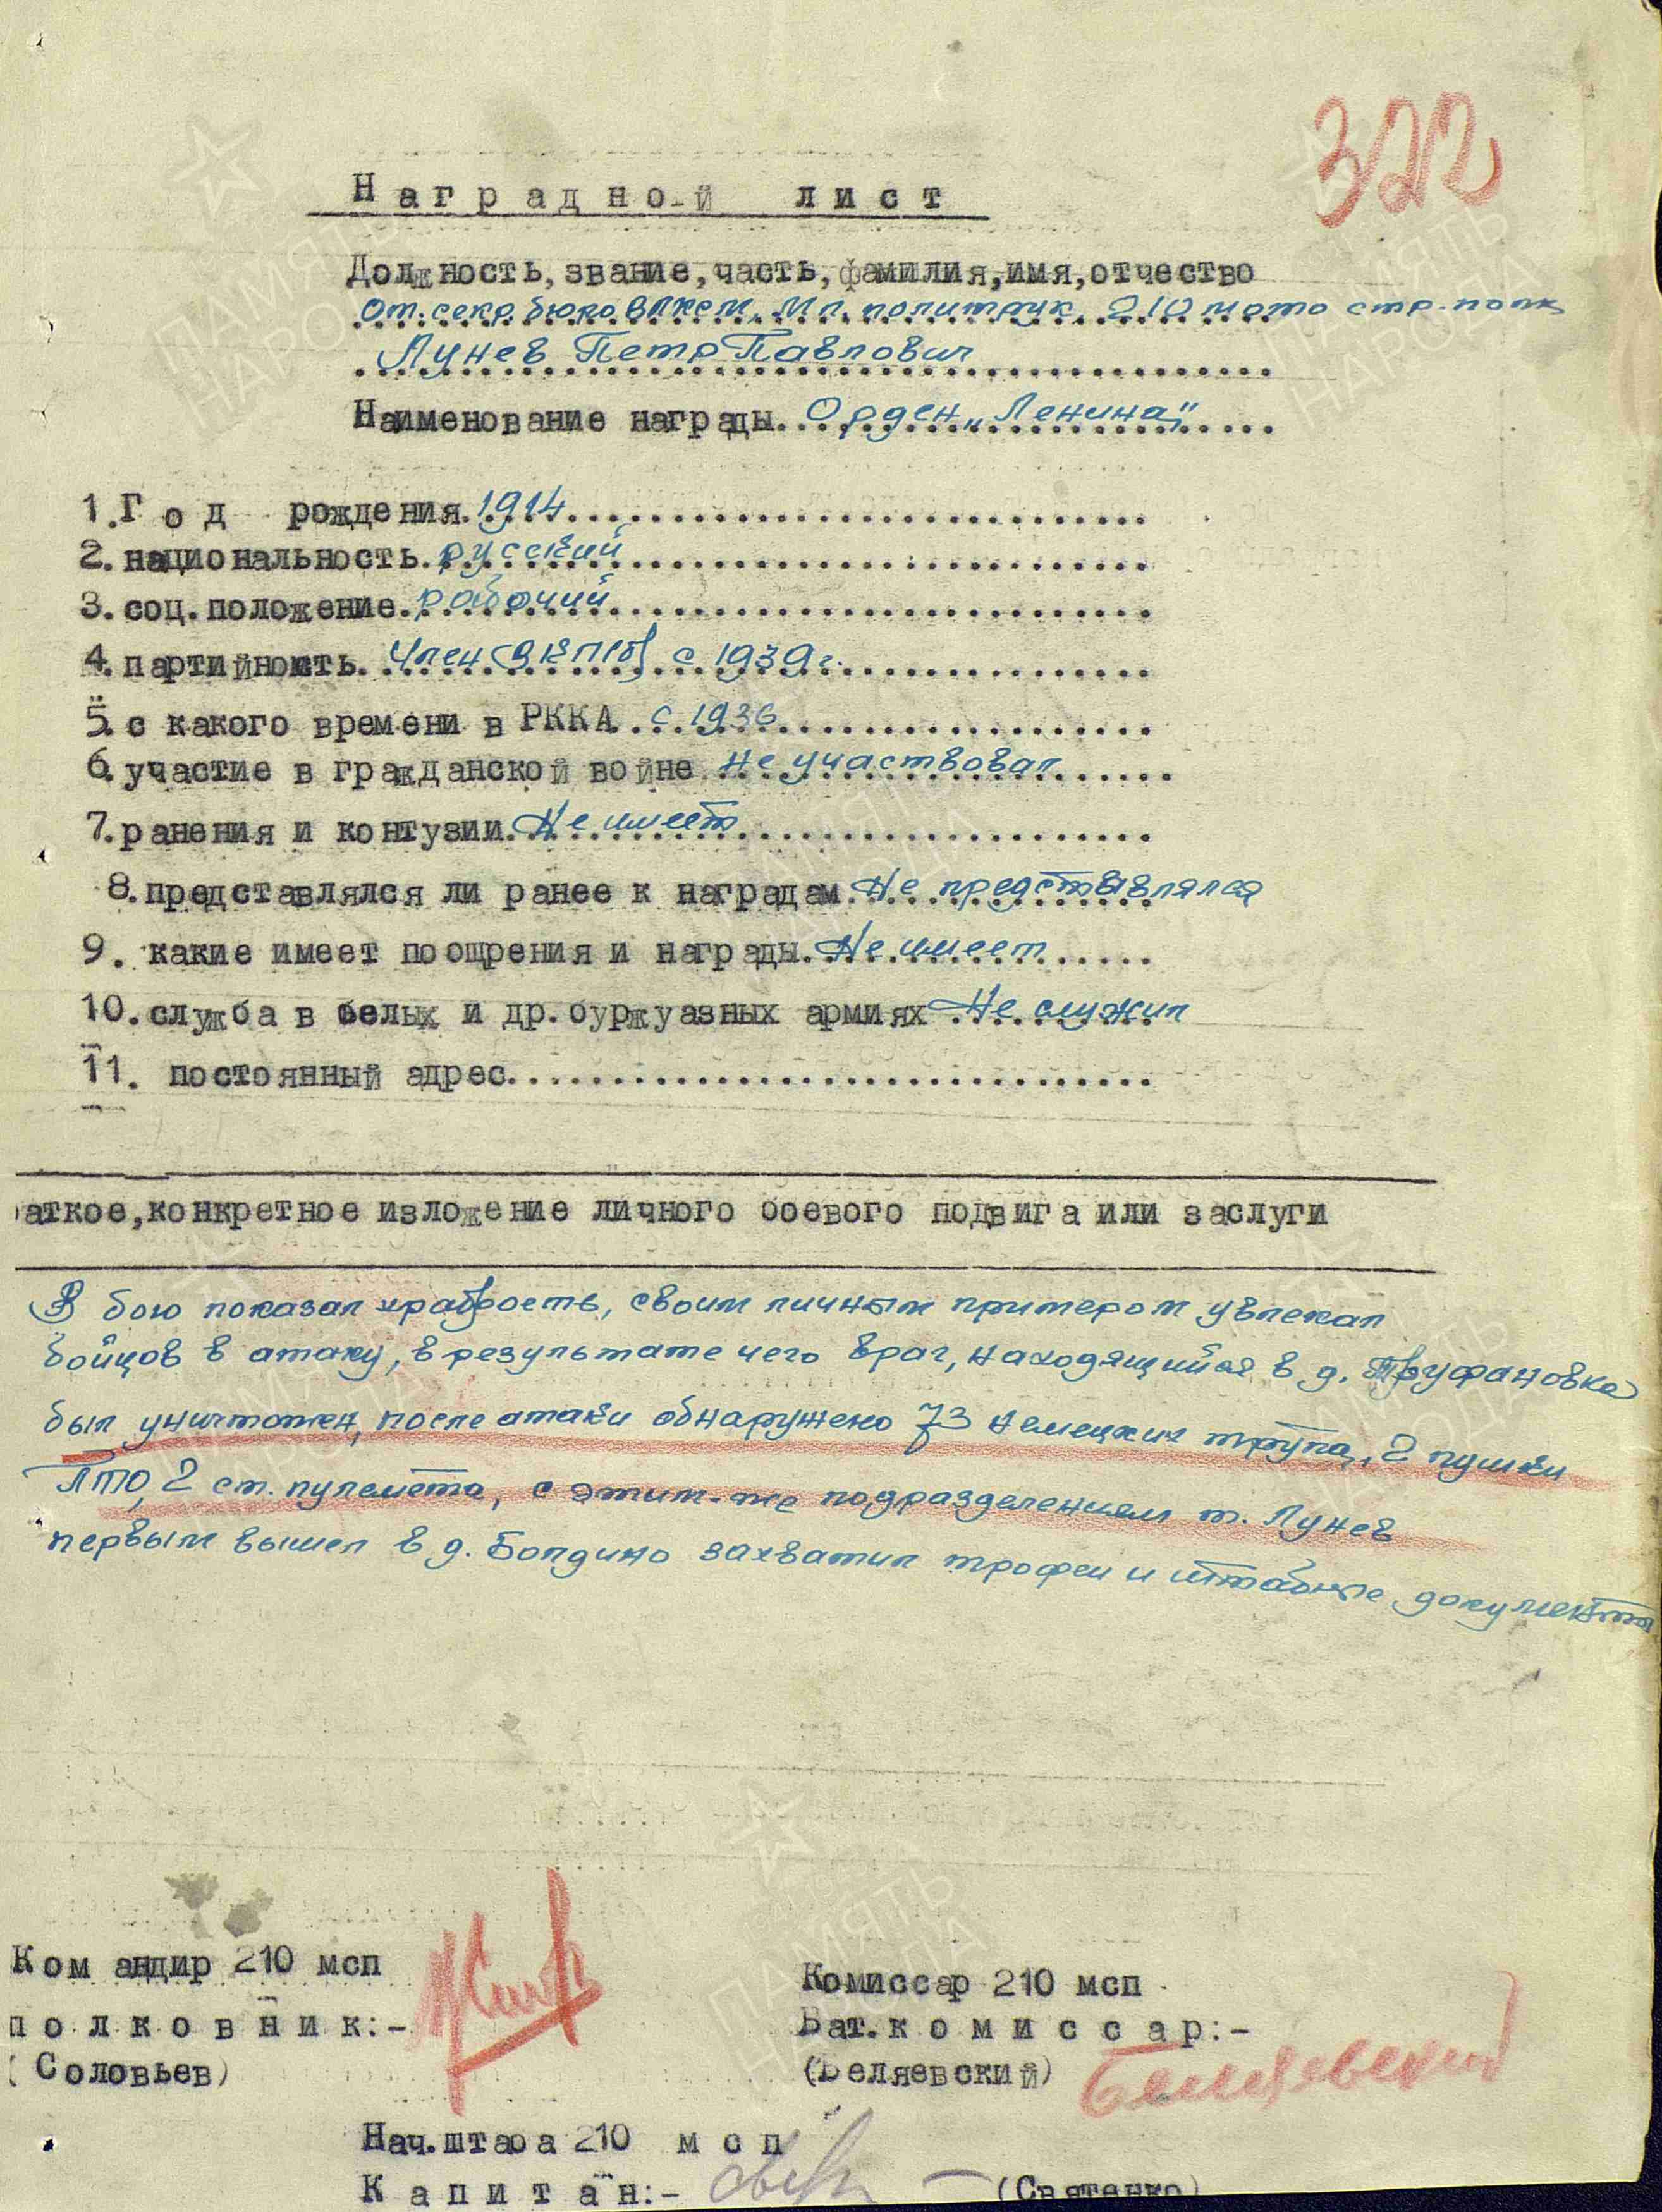 322
Наградной лист
Должность, звание, часть, фамилия, имя, отчество
От. секр. бюро ВЛКСМ, Мл. политрук 210 мото стр. полк
Лунев Петр Павлович
Наименование награды Орден „Ленина"
1. Год рождения 1914
2. национальность русский
3. соц. положение рабочий
4. партийность Член ВКП(б) с 1939 г.
5. с какого времени в РККА с 1936
6. участие в гражданской войне не участвовал
7. ранения и контузии Не имеет
8. представлялся ли ранее к наградам Не представлялся
9. какие имеет поощрения и награды Не имеет
10. служба в белых и др. буржуазных армиях Не служил
11. постоянный адрес
аткое, конкретное изложение личного боевого подвига или заслуги
В бою показал храбрость, своим личным примером увлекал
бойцов в атаку, в результате чего враг, находящийся в д. Труфановка
был уничтожен, после атаки обнаружено 73 немецких трупа, 2 пушки
ПТО, 2 ст. пулемета, с этим-же подразделением т. Лунев
первым вышел в д. Болдино захватил трофеи и штабные документы
Командир 210 мсп
полковник:-
(Соловьев)
Комиссар 210 мсп
Бат. комиссар:-
(Беляевский) Беляевский
Нач. штаба 210 мсп
Капитан:- (Святенко)
ПАМЯТЬ НАРОДА